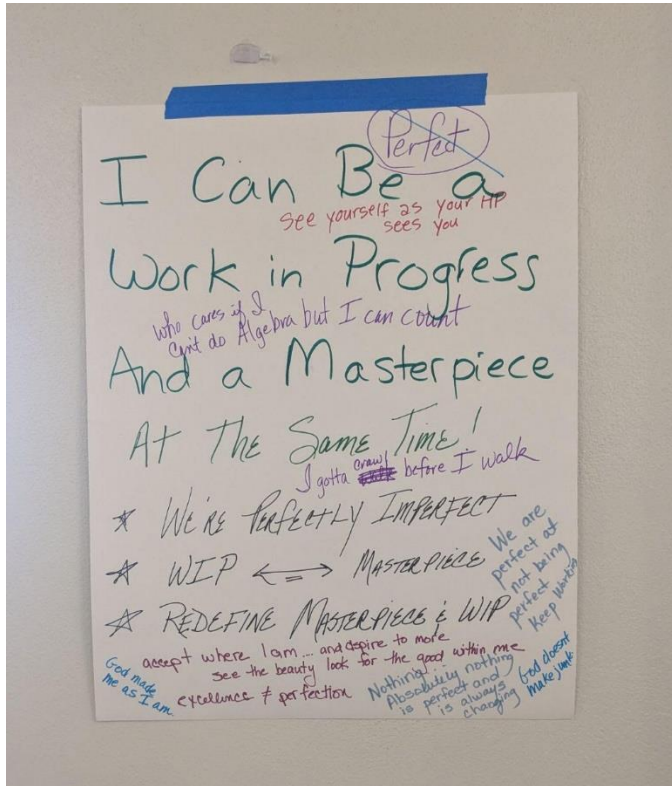 Perfect
I Can Be a
see yourself as your HP
sees you
Work in Progress
Who cares if I
Can't do Algebra but I can count
And a Masterpiece
At The Same Time!
I gotta crawl before I walk
* We're Perfectly Imperfect
* WIP <=> Masterpiece
* Redefine Masterpiece & WIP
We are
perfect at
not being
perfect
Keep Working
accept where I am... and aspire to more
see the beauty look for the good within me
excellence ≠ perfection
God made
me as I am
Nothing...
Absolutely nothing
is perfect and
is always
changing
God doesnt
make junk.